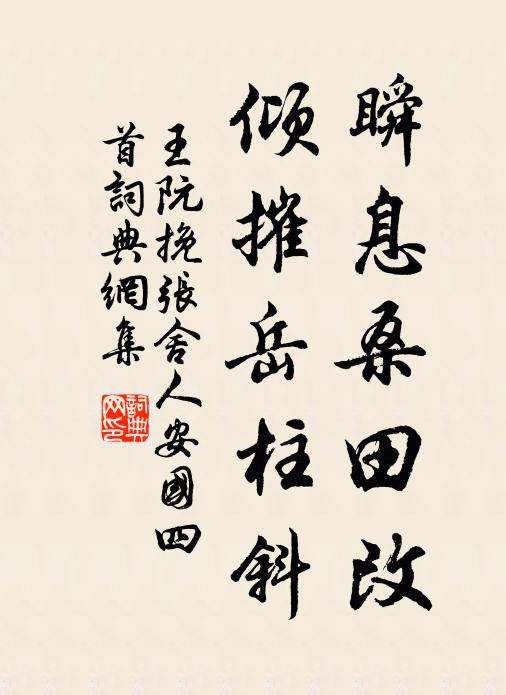 瞬息桑田改
傾摧岳柱斜
王阮挽張舍人安國四
首詞典網集
詞典
网印